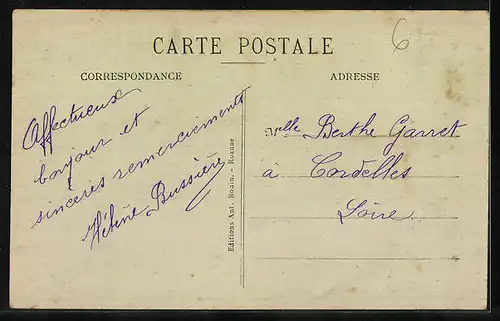 CARTE POSTALE
6
CORRESPONDANCE
ADRESSE
Affectueux
bonjour et
sincères remerciements
Hélène Bussière
Editions Ant. Bouin. - Roanne
Melle Berthe Garret
à Cordelles
Loire